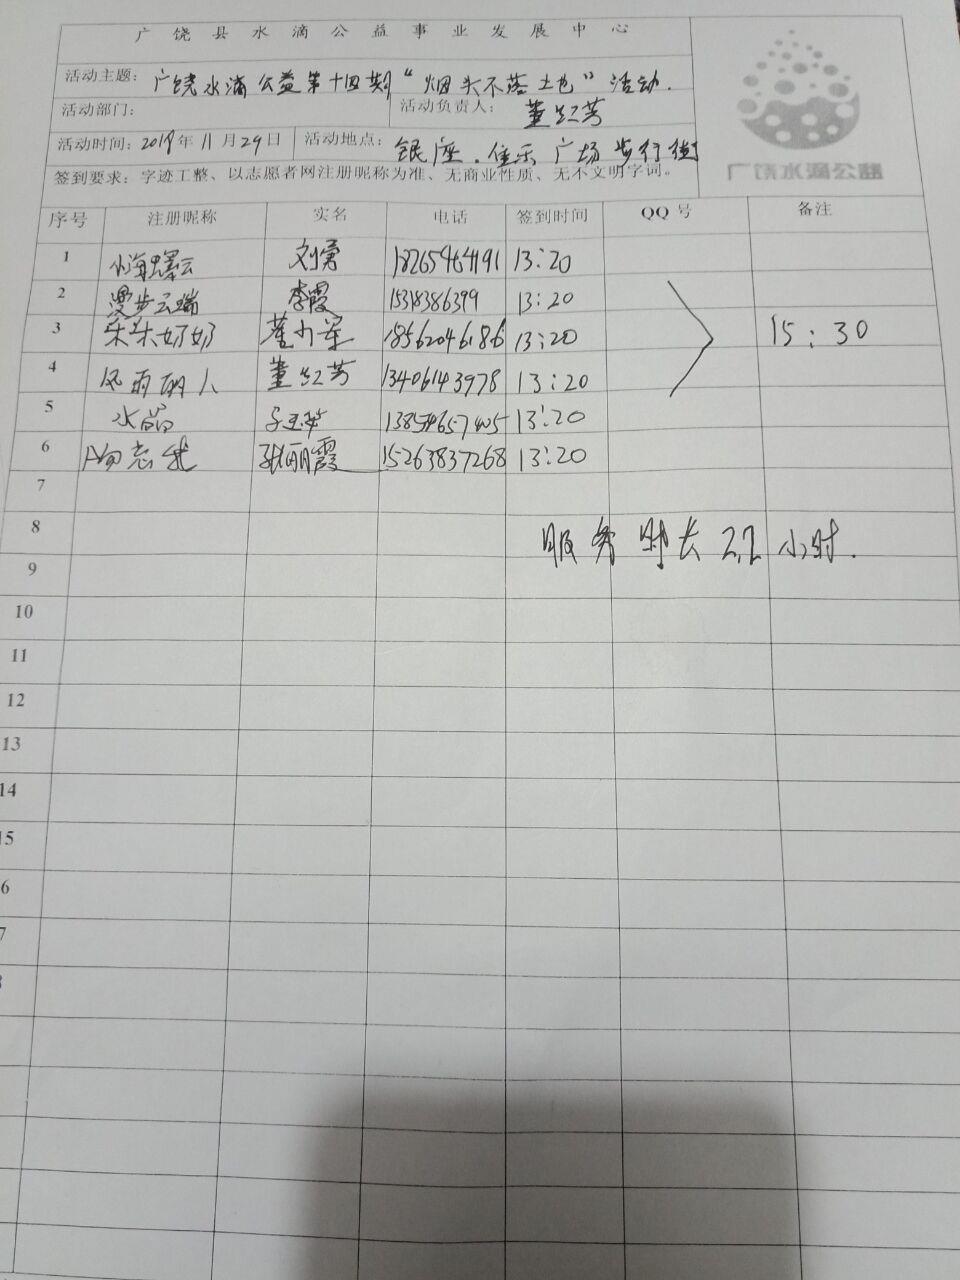 广饶县水滴公益事业发展中心
活动主题: 广饶水滴公益第十四期“烟头不落土也”活动.
活动部门: 活动负责人: 董红芳
活动时间: 2019年11月29日 活动地点: 银座.佳乐广场步行街
签到要求: 字迹工整、以志愿者网注册昵称为准、无商业性质、无不文明字词。
广饶水滴公益
序号 注册昵称 实名 电话 签到时间 QQ号 备注
1 小海螺云 刘勇 18265464191 13:20
2 漫步云端 李霞 15318386399 13:20
3 朵朵奶奶 18562046186 13:20 15:30
4 风雨丽人 董红芳 13406143978 13:20
5 水 13854657405 13:20
6 张丽霞 15263837268 13:20
7
8
服务时长2.2小时.
9
10
11
12
13
14
15
6
7